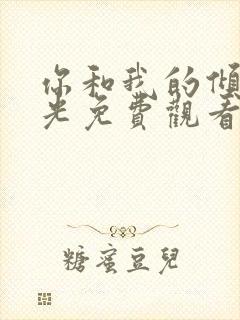 你和我的傾
光免費觀看
糖蜜豆兒